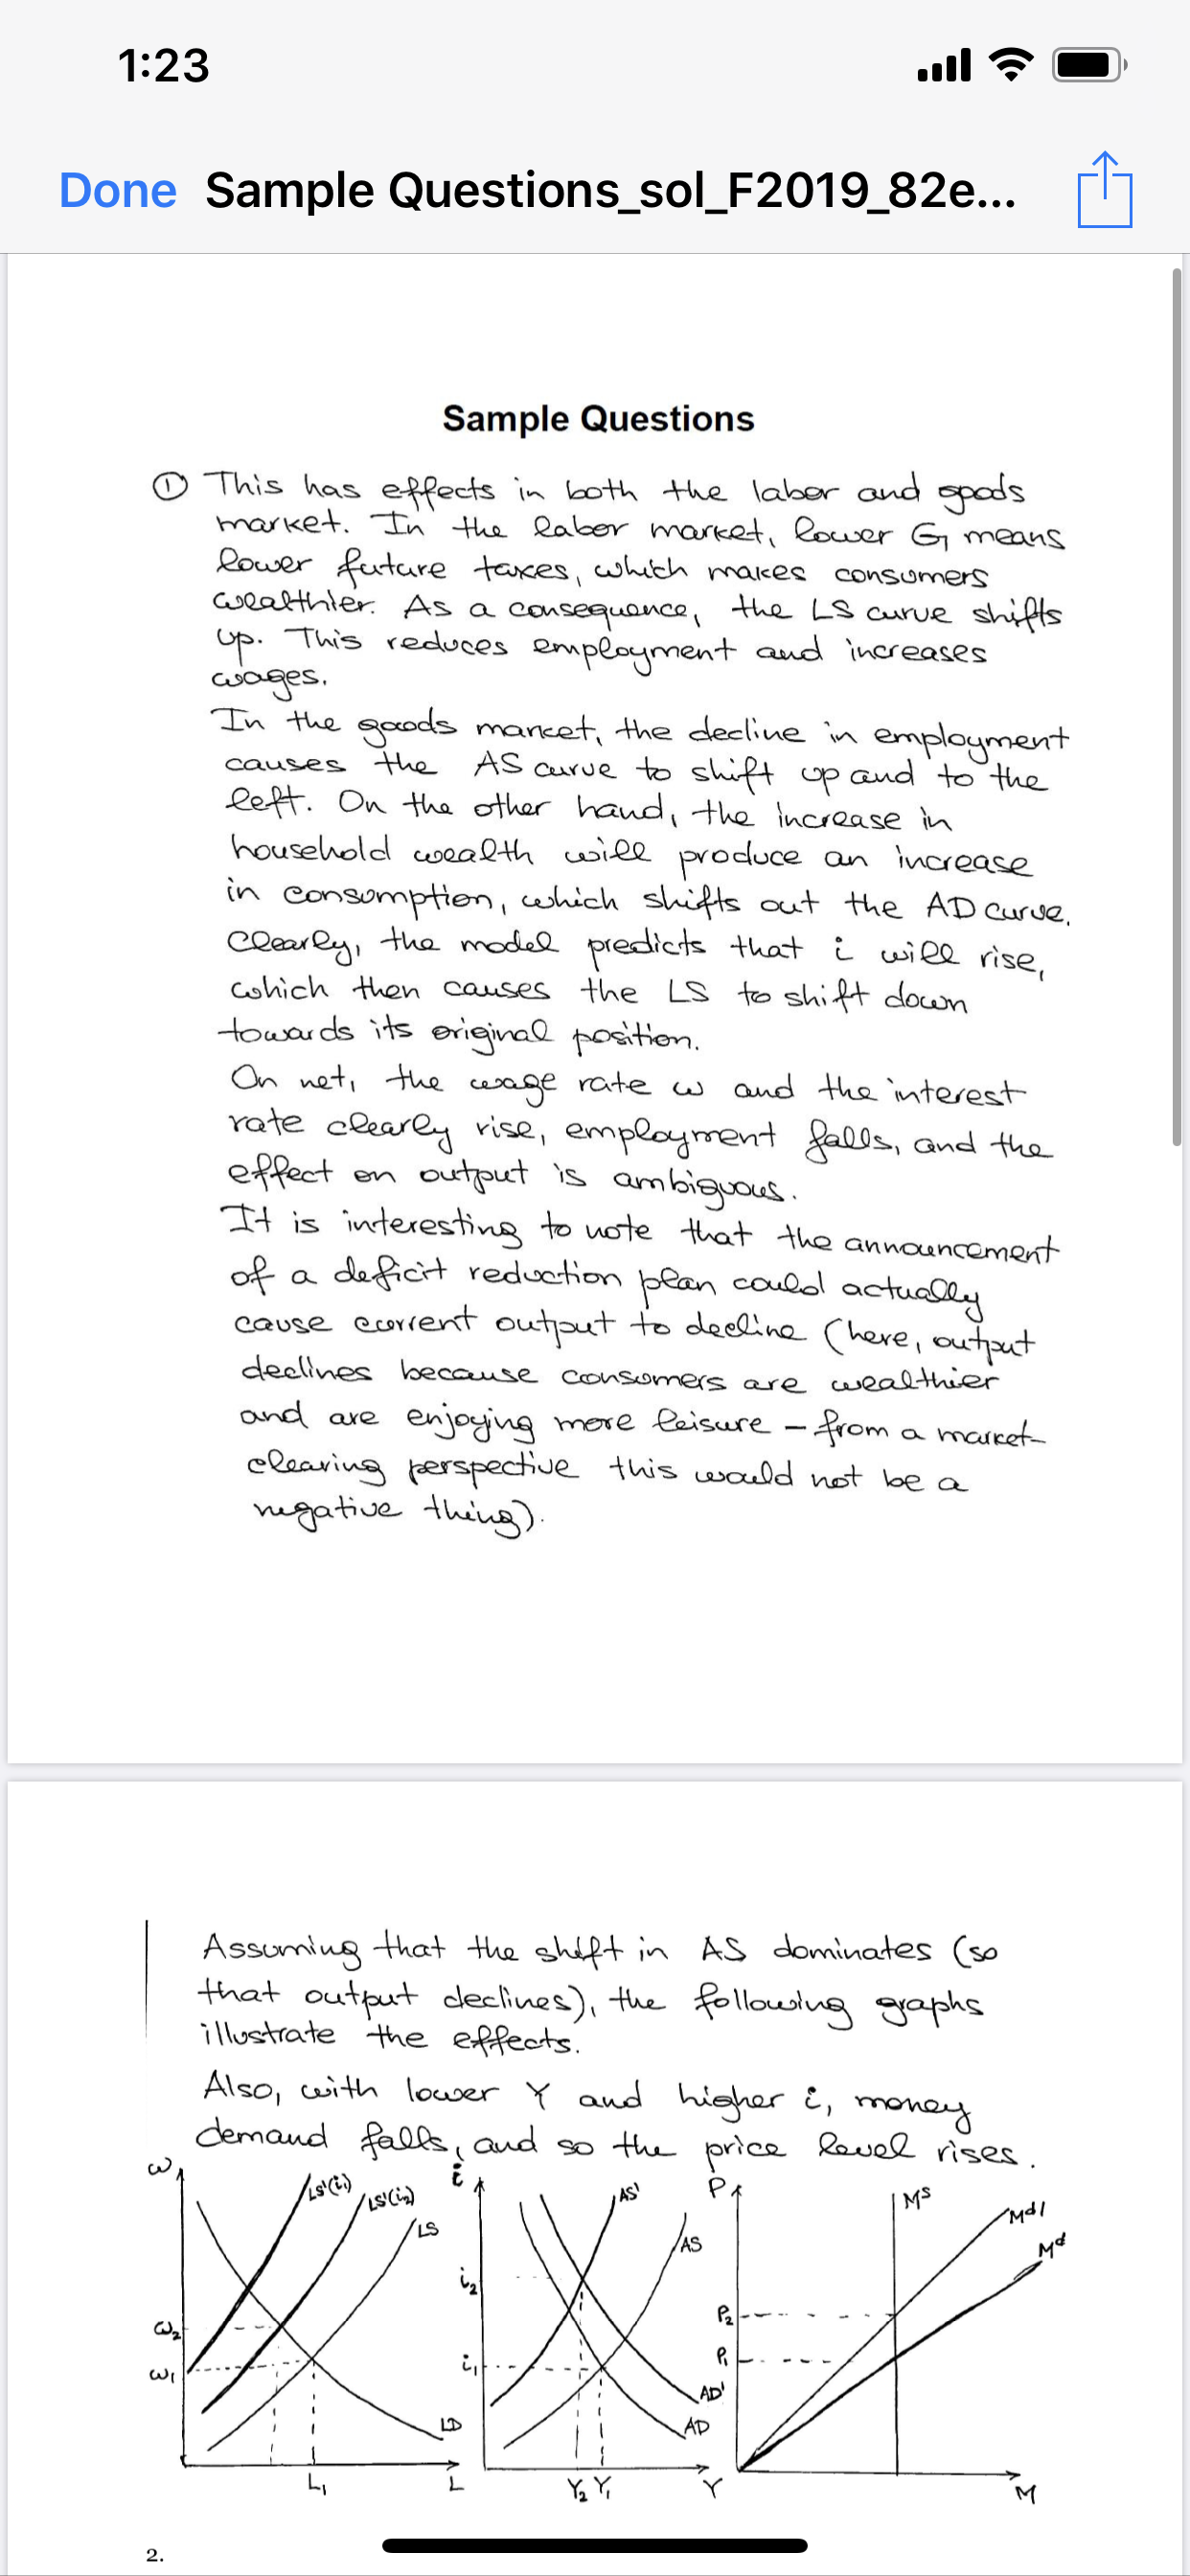 1:23
Done Sample Questions_sol_F2019_82e...
Sample Questions
① This has effects in both the labor and goods
market. In the labor market, lower G means
lower future taxes, which makes consumers
wealthier. As a consequence, the LS curve shifts
up. This reduces employment and increases
wages.
In the goods market, the decline in employment
causes the AS curve to shift up and to the
left. On the other hand, the increase in
household wealth will produce an increase
in consumption, which shifts out the AD curve.
Clearly, the model predicts that i will rise,
which then causes the LS to shift down
towards its original position.
On net, the wage rate w and the interest
rate clearly rise, employment falls, and the
effect on output is ambiguous.
It is interesting to note that the announcement
of a deficit reduction plan could actually
cause current output to decline (here, output
declines because consumers are wealthier
and are enjoying more leisure – from a market-
clearing perspective this would not be a
negative thing).
Assuming that the shift in AS dominates (so
that output declines), the following graphs
illustrate the effects.
Also, with lower Y and higher i, money
demand falls, and so the price level rises.
w LS'(i₁) LS'(i₂) LS w₂ w₁ LD L₁ L
i AS' AS i₂ i₁ AD' AD Y₂ Y₁ Y
P Mˢ Mᵈ' Mᵈ P₂ P₁ M
2.